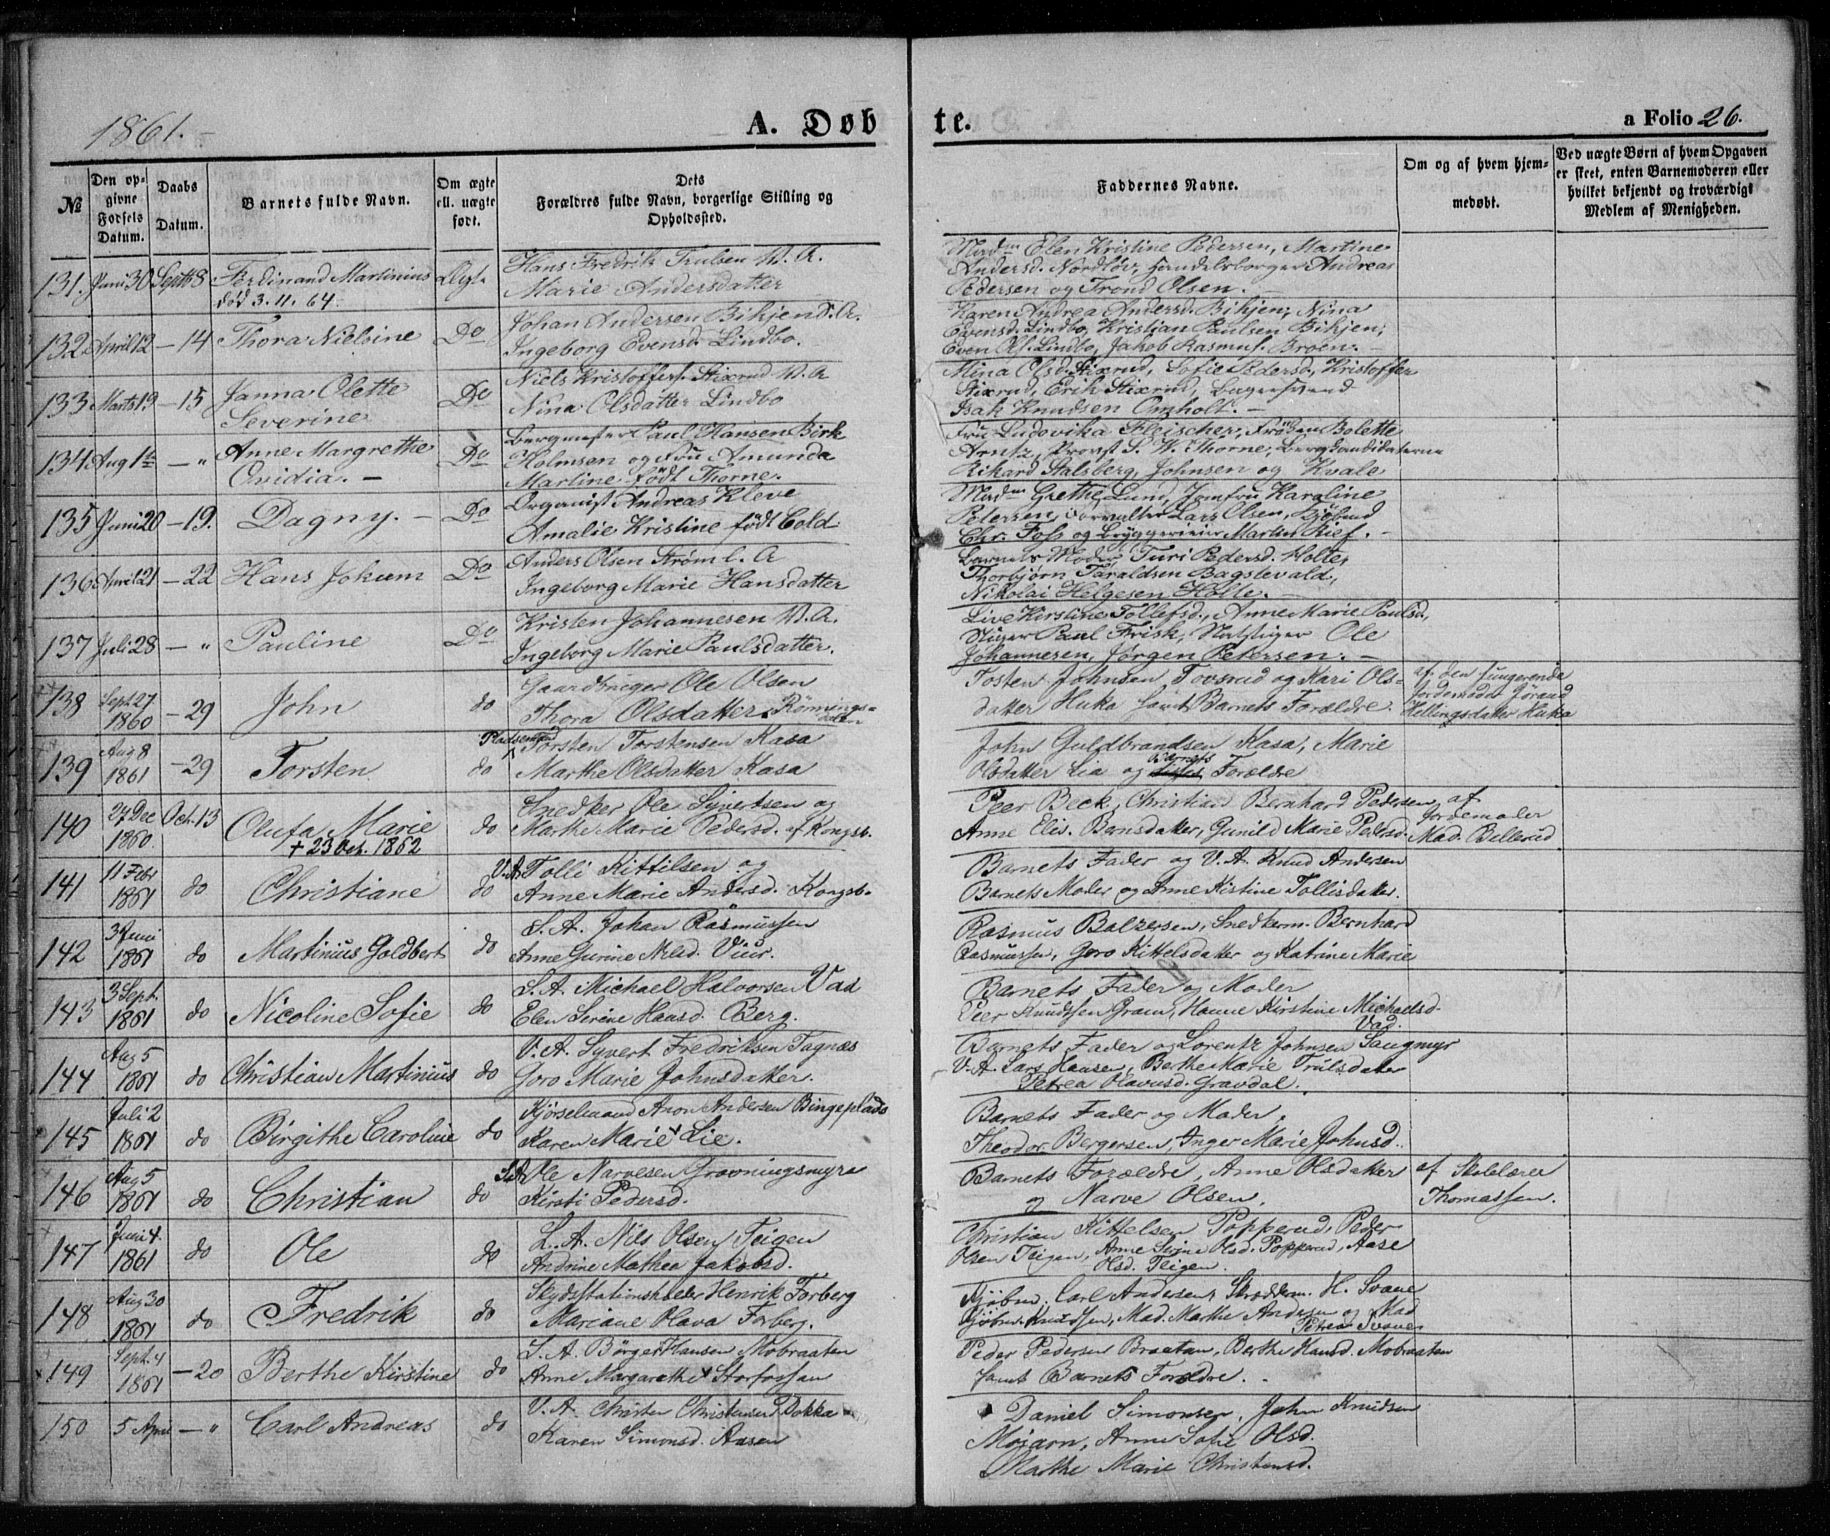 1861.
A. Døb
te.
a Folio 26.
№
Den opgivne Fødsels Datum.
Daabs Datum.
Barnets fulde Navn.
Om ægte ell. uægte født.
Dets Forældres fulde Navn, borgerlige Stilling og Opholdssted.
Faddernes Navne.
Om og af hvem hjemmedøbt.
Ved uægte Børn af hvem Opgaven er skeet, enten Barnemoderen eller hvilket bekjendt og troværdigt Medlem af Menigheden.
131. Juni 30 Septb 8 Ferdinand Martinius Ægt. Hans Fredrik Truben V. A.
død 3.11.64. Marie Andersdatter
Madm Elen Kristine Pedersen, Martine
Andersd. Nordløv, Handelsborger Andreas
Pedersen og Trond Olsen. —
132 April 12 — 14 Thora Nielsine Do Johan Andersen Bihjen S. A.
Ingeborg Evensd. Lindbo.
Karen Andrea Andersd. Bihjen, Nina
Evensd. Lindbo, Kristian Paulsen Bihjen,
Even Ols. Lindbo, Jakob Rasmus. Broen. —
133 Marts 19 — 15 Janna Olette Do Niels Kristoffers. Stixrud V. A
Severine Nina Olsdatter Lindbo
Mina Olsd. Stixrud, Sofie Pedersd., Kristoffer
Stixrud, Erik Stixrud,
Isak Knudsen Omholt. —
134 Aug 1ste — „ Anne Margrethe Do Bergmester Paul Hansen Birk
Ovidia. — Holmsen og Fru Amunda
Martine født Thorne.
Fru Ludovika Fleischer, Frøken Bolette
Arntz, Provst S. W. Thorne, Bergkandidaterne
Rikard Stalsberg, Johnsen og Kvale
135 Juni 20 — 19. Dagny. — Do Organist Andreas Kleve
Amalie Kristine født Cold
Madm Grethe Lund, Jomfru Karoline
Petersen, Forvalter Lars Olsen, Kjøbmd
Chr. Foss og Bryggerieier Martin Rief. —
136 April 21 — 22 Hans Jokum Do Anders Olsen Strøm L. A
Ingeborg Marie Hansdatter
Barnets Moder Turi Pedersd. Holte,
Thorbjørn Taraldsen Bagstevald,
Nikolai Helgesen Holte. —
137 Juli 28 — „ Pauline Do Kristen Johannesen V. A.
Ingeborg Marie Paulsdatter.
Live Kirstine Tollefsd., Anne Marie Paulsd,
Stiger Paul Frisk, Ole
Johannesen, Jørgen Petersen. —
138 Sept. 27 1860 — 29 John do Gaardbruger Ole Olsen
Thora Olsdatter Rønningsdalen
Tosten Johnsen Tovsrud og Kari Olsdatter
Huka samt Barnets Forældre.
af den fungerende Jordemoder Jørand Hellingsdatter Huka
139 Aug 8 1861 — 29 Torsten do Pladsemand Torsten Torstensen Kasa
Marthe Olsdatter Kasa
John Guldbrandsen Kasa, Marie
Olsdatter Lia og Barnets Forældre
140 27 Dec 1860 Oct. 13 Olufa Marie do Snedker Ole Syvertsen og
+ 23 Oct. 1862 Marthe Marie Pedersd. af Kongsb.
Peer Beck, Christian Bernhard Pedersen
Anne Elis. Bensdatter, Gunild Marie Pedersd.
af Jordemoder Mad. Bellerud
141 11 Febr 1861 do Christiane do V.A. Tolli Kittilsen og
Anne Marie Andersd. Kongsb.
Barnets Fader og V. A. Knud Andersen
Barnets Moder og Anne Kistine Tollisdatter.
142 3 Juni 1861 do Martinius Goldbert do S. A. Johan Rasmussen
Anne Gurine Nilsd. Viur.
Rasmus Balzersen, Snedkerm. Bernhard
Rasmussen, Goro Kittelsdatter og Katrine Marie
143 3 Sept. 1861 do Nicoline Sofie do S. A. Michael Halvorsen Vad
Elen Serine Hansd. Berg.
Barnets Fader og Moder
Peer Knudsen Gram, Hanne Kirstine Michaelsd. Vad.
144 Aug 5 1861 do Christian Martinius do V. A. Syvert Fredriksen Tagnæs
Goro Marie Johnsdatter.
Barnets Fader og Lorentz Johnsen Saugmyr
V. A. Lars Hansen, Berthe Marie Trulsdatter
Petrea Olavusd. Gravdal.
145 Juli 2 1861 do Birgithe Caroline do Kjørselmand Anon Andersen Bingeplads
Karen Marie Lie.
Barnets Fader og Moder,
Theodor Bergersen, Inger Marie Johnsd.
146 Aug 5 1861 do Christian do S.A. Ole Narvesen Gravningsmyra
Kirsti Pedersd.
Barnets Forældre, Anne Olsdatter
og Narve Olsen.
af Skolelærer Thomassen.
147 Juni 4. 1861 do Ole do L. A. Nils Olsen Teigen
Andrine Mathea Jakobsd.
Christian Kittelsen Popperud, Peder
Olsen Teigen, Anne Serine Olsd. Popperud, Aase
Olsd. Teigen.
148 Aug 30 1861 do Fredrik do Skydsstationsholder Henrik Forberg
Mariane Olava Forberg.
Kjøbm. Carl Andersen, Skræderm. H. Svane
Kjøbm. Knudsen, Mad. Marthe Andersen og Mad
Petrea Svane
149 Sept. 4 1861 — 20 Berthe Kirstine do S. A. Börger Hansen Mobraaten
Anne Margarethe Storfossan
Peder Pedersen Braatan, Berthe Hansd. Mobraaten
samt Barnets Forældre. —
150 5 April — „ Carl Andreas do V. A. Christen Christensen Dokka
Karen Simonsd. Aasen
Daniel Simonsen, John Knudsen
Moiarn, Anne Sofie Olsd.
Marthe Marie Christensd.